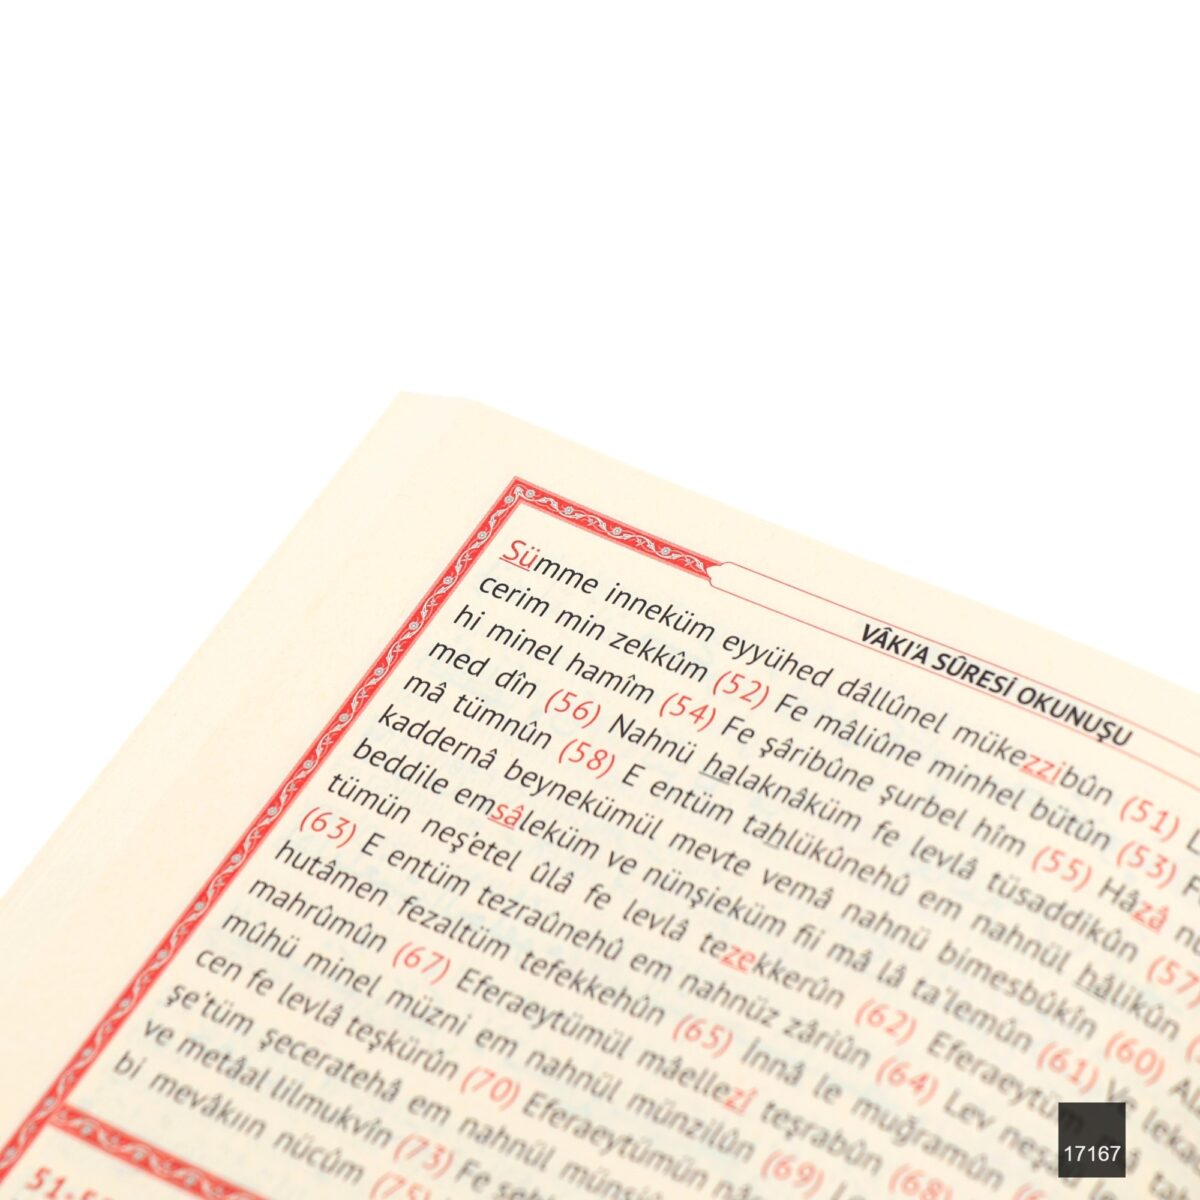 VÂKI'A SÛRESİ OKUNUŞU
Sümme inneküm eyyühed dâllûnel mükezzibûn (51)
cerim min zekkûm (52) Fe mâliûne minhel bütûn (53)
hi minel hamîm (54) Fe şâribûne şurbel hîm (55) Hâzâ
med dîn (56) Nahnü halaknâküm fe levlâ tüsaddikûn (57)
mâ tümnûn (58) E entüm tahlükûnehû em nahnül hâlikûn
kaddernâ beynekümül mevte vemâ nahnü bimesbûkîn (60)
beddile emsâleküm ve nünşieküm fii mâ lâ ta'lemûn (61)
tümün neş'etel ûlâ fe levlâ tezekkerûn (62) Eferaeytüm
(63) E entüm tezraûnehû em nahnüz zâriûn (64) Lev
hutâmen fezaltüm tefekkehûn (65) İnnâ le muğramûn
mahrûmûn (67) Eferaeytümül mâellezî teşrabûn (68)
mûhü minel müzni em nahnül münzilûn (69)
cen fe levlâ teşkürûn (70) Eferaeytümün
şe'tüm şeceratehâ em nahnül
ve metâal lilmukvîn (73) Fe
bi mevâkıın nücûm (75)
17167